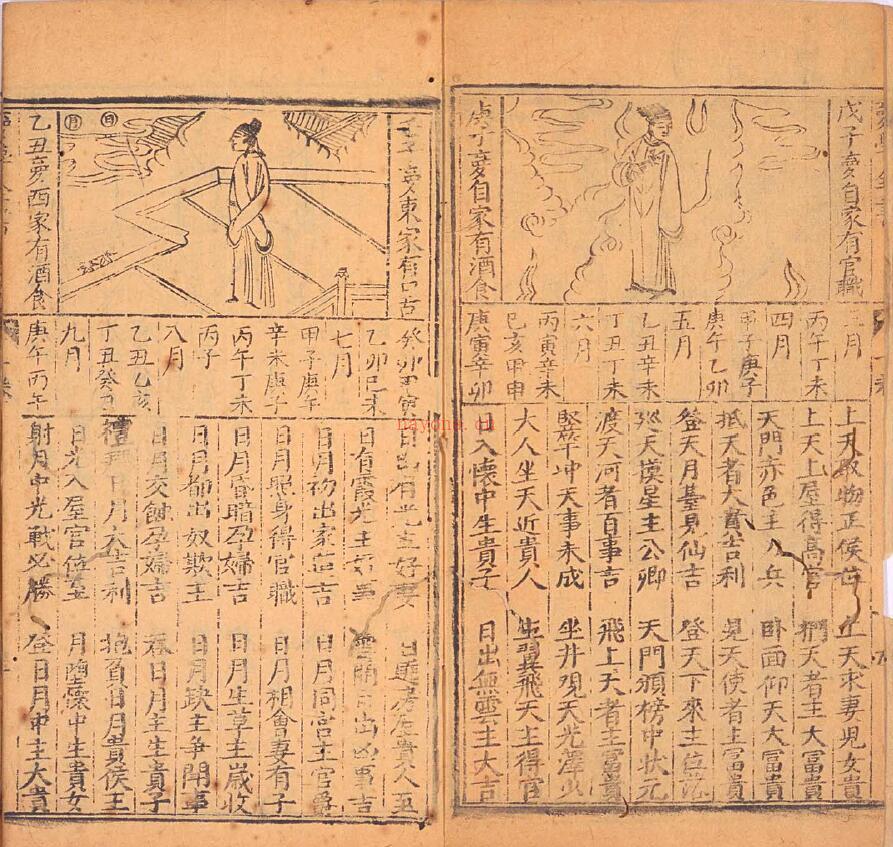 戊子夢自家有官職
庚子夢自家有酒食
三月
丙午丁未
四月
甲子庚子
庚午乙卯
五月
乙丑辛未
丁丑丁未
六月
丙寅辛未
己亥甲申
庚寅辛卯
上天取物正侯位
上天求妻兒女貴
上天上屋得高官
捫天者主大富貴
天門赤色主八兵
卧面仰天大富貴
抵天者大富吉利
見天使者主富貴
登天月臺見仙吉
登天下來主位
巡天摸星主公卿
天門頒榜中狀元
渡天河者百事吉
飛上天者主富貴
坤天事未成
坐井观天光澤少
大人坐天近貴人
生翼飛天主得官
日入懷中生貴子
日出無雲主大吉
子夢東家有口舌
日
月
乙丑夢西家有酒食
癸卯甲寅
乙卯己未
七月
甲子庚午
辛未庚子
丙午丁未
丙子
八月
乙丑乙亥
丁丑癸丑
九月
庚午丙午
日出有光主好妻
日有霞光主好事
日出凶事吉
日月初出家道吉
日月同宫主官爵
日月照身得官職
日月相會妻有子
日月昏暗孕婦吉
日月生草主歲收
日月都出奴欺主
日月缺主争閙事
日月交蝕孕婦吉
吞日月主生貴子
禮拜日月大吉利
抱負日月貴侯王
日光入屋官位至
月墮懷中生貴女
射月中光戰必勝
登日月中主大貴
nayone.cn